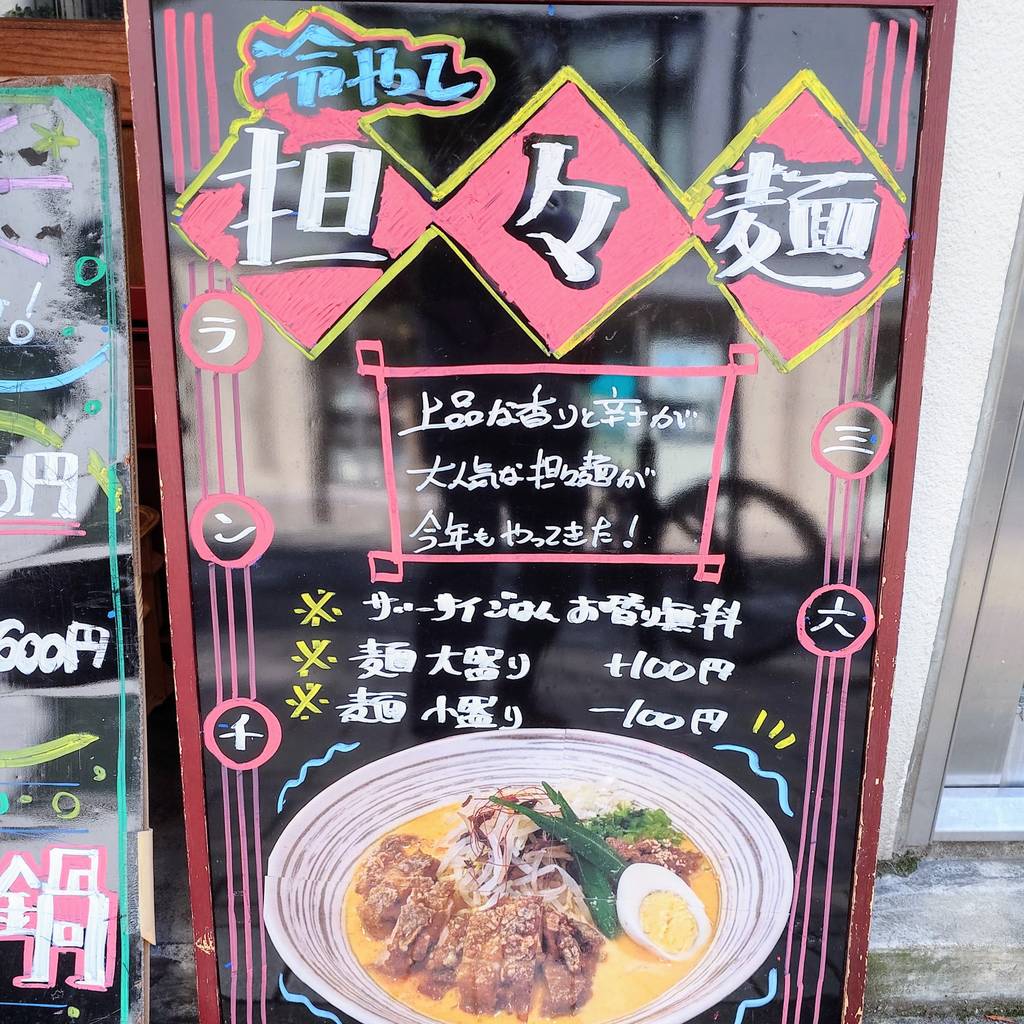 冷やし
担々麺
ランチ
三六
上品な香りと辛さが
大人気な担々麺が
今年もやってきた!
※ ザーサイごはんお替り無料
※ 麺 大盛り +100円
※ 麺 小盛り -100円
0円
600円
鍋